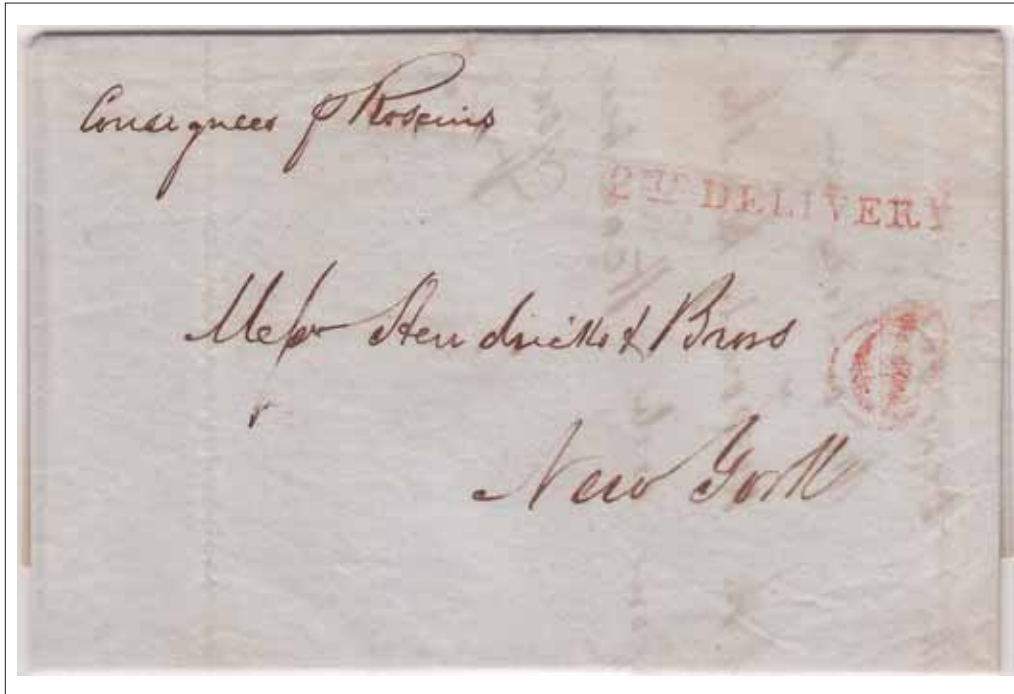 Consignees p Roscius
2ND DELIVERY
Messrs Hendricks & Bross
New York